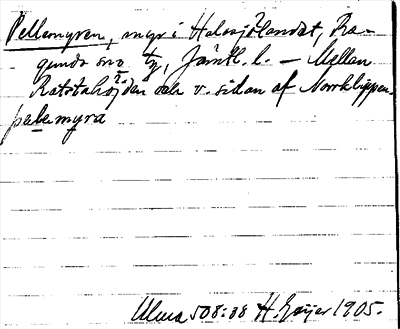 Pellemyren, myr i Halasjölandet, Ra-
gunda sn o tg, Jämtl. l. – Mellan
Ratstahöjden och v. sidan af Norrklippen.
palemyra
Ulma 508:38 H. Geijer 1905.